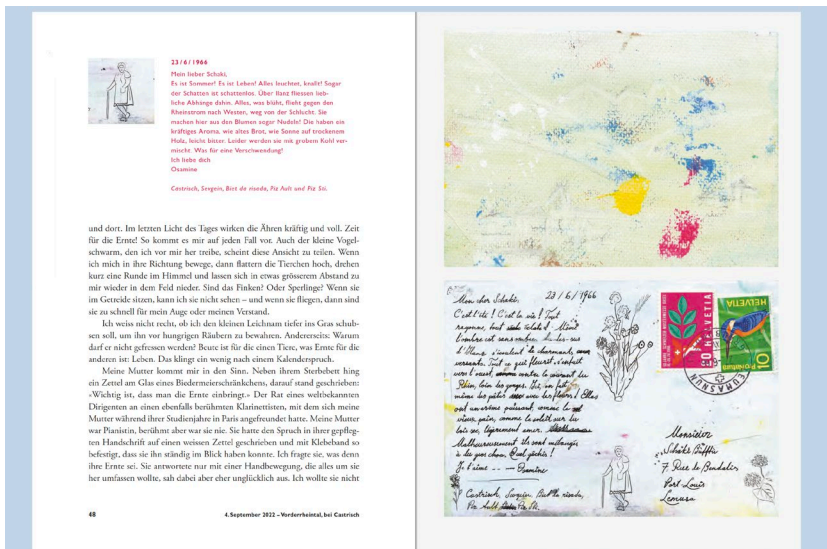 23/6/1966
Mein lieber Schaki,
Es ist Sommer! Es ist Leben! Alles leuchtet, knallt! Sogar
der Schatten ist schattenlos. Über Ilanz fliessen lieb-
liche Abhänge dahin. Alles, was blüht, flieht gegen den
Rheinstrom nach Westen, weg von der Schlucht. Sie
machen hier aus den Blumen sogar Nudeln! Die haben ein
kräftiges Aroma, wie altes Brot, wie Sonne auf trockenem
Holz, leicht bitter. Leider werden sie mit grobem Kohl ver-
mischt. Was für eine Verschwendung!
Ich liebe dich
Osamine
Castrisch, Sevgein, Biet da rueda, Piz Ault und Piz Sti.
und dort. Im letzten Licht des Tages wirken die Ähren kräftig und voll. Zeit
für die Ernte! So kommt es mir auf jeden Fall vor. Auch der kleine Vogel-
schwarm, den ich vor mir her treibe, scheint diese Ansicht zu teilen. Wenn
ich mich in ihre Richtung bewege, dann flattern die Tierchen hoch, drehen
kurz eine Runde im Himmel und lassen sich in etwas grösserem Abstand zu
mir wieder in dem Feld nieder. Sind das Finken? Oder Sperlinge? Wenn sie
im Getreide sitzen, kann ich sie nicht sehen – und wenn sie fliegen, dann sind
sie zu schnell für mein Auge oder meinen Verstand.
Ich weiss nicht recht, ob ich den kleinen Leichnam tiefer ins Gras schub-
sen soll, um ihn vor hungrigen Räubern zu bewahren. Andererseits: Warum
darf er nicht gefressen werden? Beute ist für die einen Tiere, was Ernte für die
anderen ist: Leben. Das klingt ein wenig nach einem Kalenderspruch.
Meine Mutter kommt mir in den Sinn. Neben ihrem Sterbebett hing
ein Zettel am Glas eines Biedermeierschränkchens, darauf stand geschrieben:
«Wichtig ist, dass man die Ernte einbringt.» Der Rat eines weltbekannten
Dirigenten an einen ebenfalls berühmten Klarinettisten, mit dem sich meine
Mutter während ihrer Studienjahre in Paris angefreundet hatte. Meine Mutter
war Pianistin, berühmt aber war sie nie. Sie hatte den Spruch in ihrer gepfleg-
ten Handschrift auf einen weissen Zettel geschrieben und mit Klebeband so
befestigt, dass sie ihn ständig im Blick haben konnte. Ich fragte sie, was denn
ihre Ernte sei. Sie antwortete nur mit einer Handbewegung, die alles um sie
her umfassen wollte, sah dabei aber eher unglücklich aus. Ich wollte sie nicht
48
4. September 2022 – Vorderrheintal, bei Castrisch
23/6/1966
Mon cher Schaki,
C'est l'été! C'est la vie! Tout
rayonne, tout éclate! Même
l'ombre est sans ombre. Au-dessus
d'Ilanz s'écoulent de charmants
versants. Tout ce qui fleurit s'enfuit
vers l'ouest, contre le courant du
Rhin, loin des gorges. Ici, on fait
même des pâtes avec des fleurs! Elles
ont un arôme puissant, comme le
vieux pain, comme le soleil sur du
bois sec, légèrement amer.
Malheureusement ils sont mélangés
à du gros chou. Quel gâchis!
Je t'aime -- Osamine
Castrisch, Sevgein, Biet da rueda,
Piz Ault Piz Sti.
HELVETIA
HELVETIA
10
Monsieur
7. Rue de
Port Louis
Lemusa